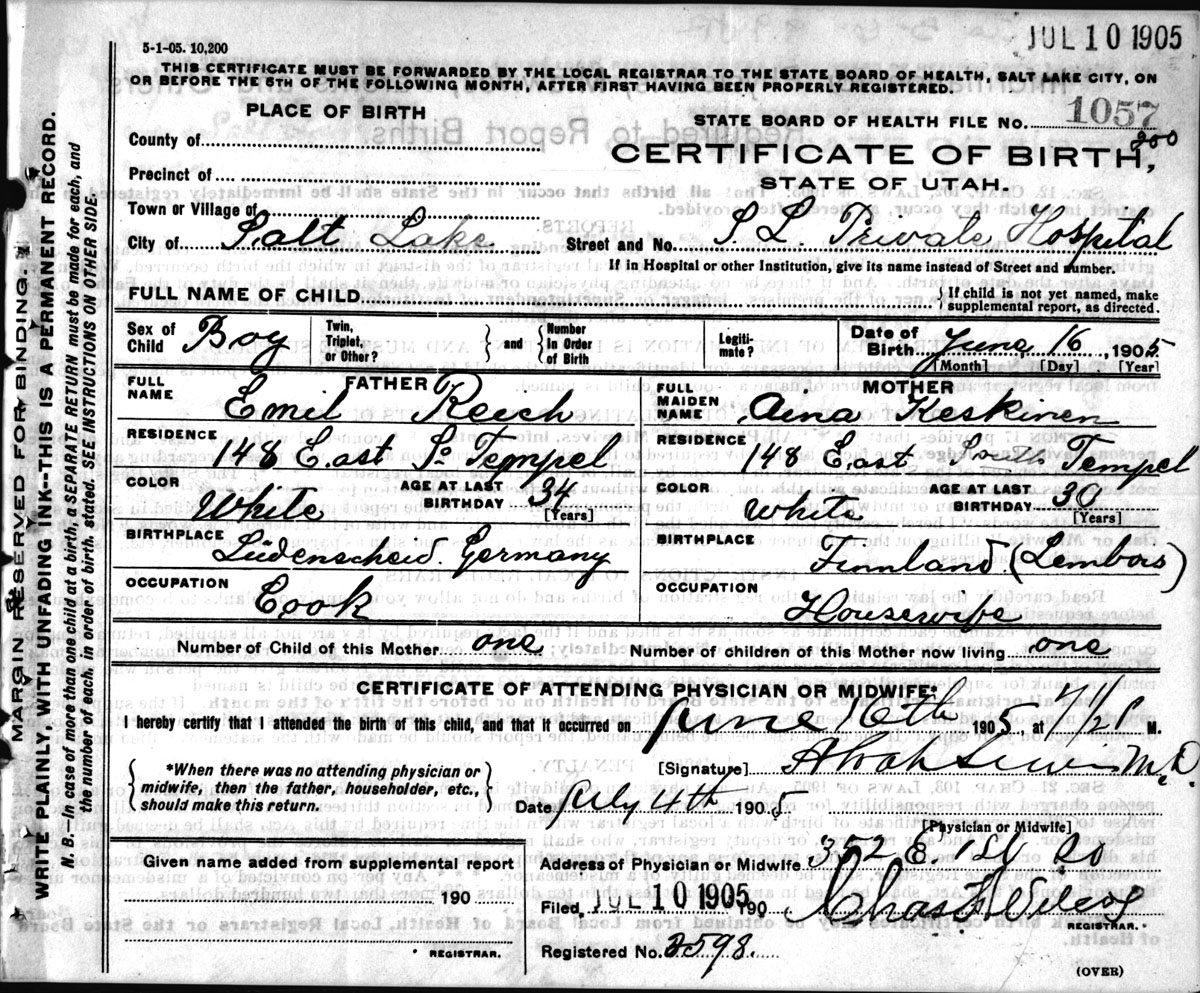 5-1-05. 10,200
JUL 10 1905
THIS CERTIFICATE MUST BE FORWARDED BY THE LOCAL REGISTRAR TO THE STATE BOARD OF HEALTH, SALT LAKE CITY, ON
OR BEFORE THE 5TH OF THE FOLLOWING MONTH, AFTER FIRST HAVING BEEN PROPERLY REGISTERED.
MARGIN RESERVED FOR BINDING.
WRITE PLAINLY, WITH UNFADING INK--THIS IS A PERMANENT RECORD.
N. B.—In case of more than one child at a birth, a SEPARATE RETURN must be made for each, and
the number of each, in order of birth, stated. SEE INSTRUCTIONS ON OTHER SIDE.
PLACE OF BIRTH
STATE BOARD OF HEALTH FILE NO. 1057
200
County of
CERTIFICATE OF BIRTH,
Precinct of
STATE OF UTAH.
Town or Village of
City of Salt Lake Street and No. S. L. Private Hospital
If in Hospital or other Institution, give its name instead of Street and number.
FULL NAME OF CHILD { If child is not yet named, make
supplemental report, as directed.
Sex of Child Boy Twin, Triplet, or Other? } and { Number In Order of Birth Legiti- mate? Date of Birth June 16, 1905
[Month] [Day] [Year]
FATHER
FULL NAME Emil Reich
RESIDENCE 148 East So Tempel
COLOR White AGE AT LAST BIRTHDAY 34
[Years]
BIRTHPLACE Lüdenscheid Germany
OCCUPATION Cook
MOTHER
FULL MAIDEN NAME Aina Keskinen
RESIDENCE 148 East South Tempel
COLOR White AGE AT LAST BIRTHDAY 30
[Years]
BIRTHPLACE Finnland (Lembois)
OCCUPATION Housewife
Number of Child of this Mother one Number of children of this Mother now living one
CERTIFICATE OF ATTENDING PHYSICIAN OR MIDWIFE*
I hereby certify that I attended the birth of this child, and that it occurred on June 16th 1905, at P M.
{ *When there was no attending physician or
midwife, then the father, householder, etc.,
should make this return. }
[Signature] M.D.
Date July 4th 1905
[Physician or Midwife]
Given name added from supplemental report
190
REGISTRAR.
Address of Physician or Midwife 352 E. 1st So
Filed, JUL 10 1905 190 Chas F. Wilcox
REGISTRAR.
Registered No. 2598.
(OVER)